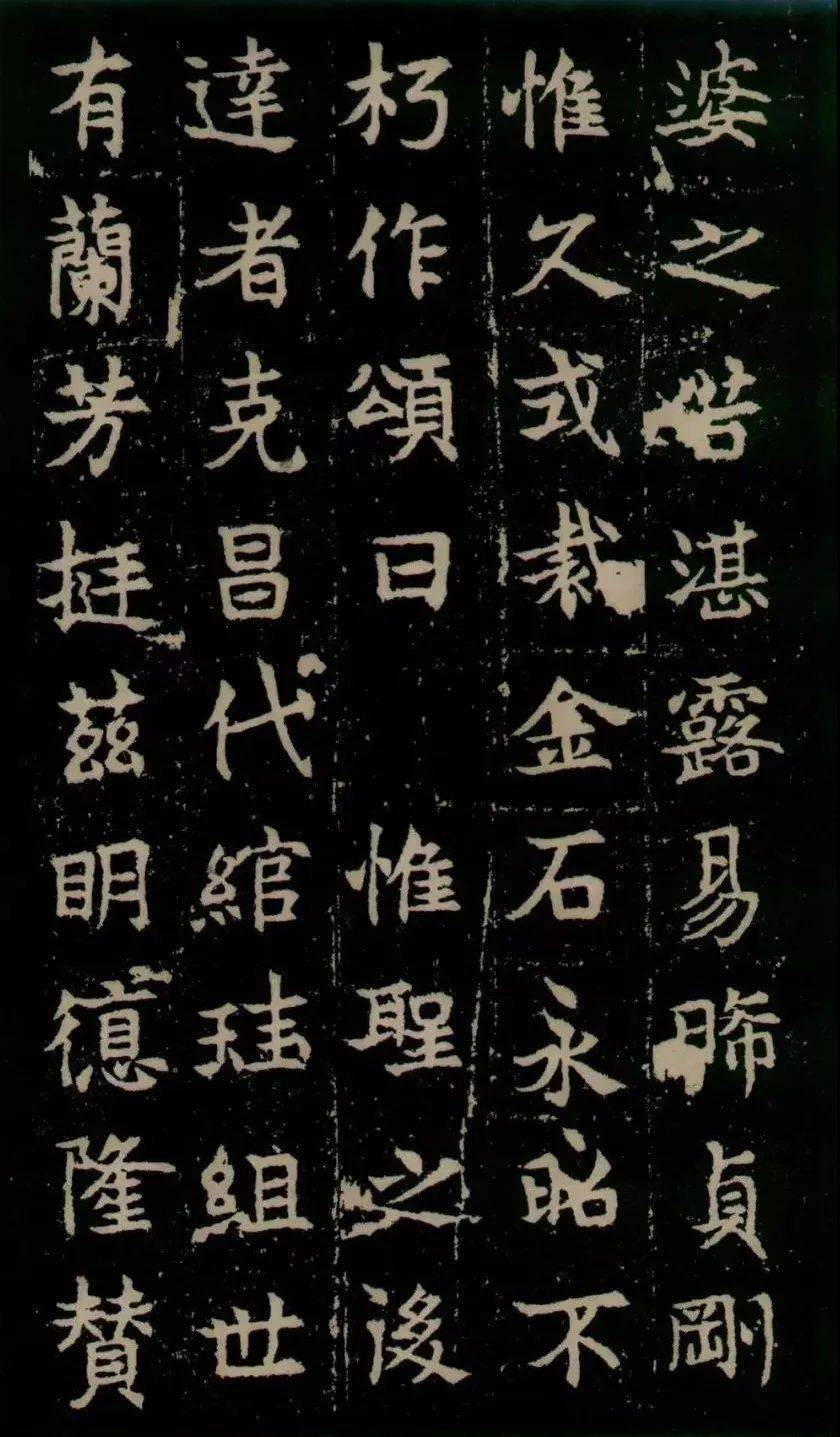 婆之𠰥湛露易晞貞剛
惟久式栽金石永昭不
朽作頌曰惟聖之後
達者克昌代綰珪組世
有蘭芳挺茲明德隆贊